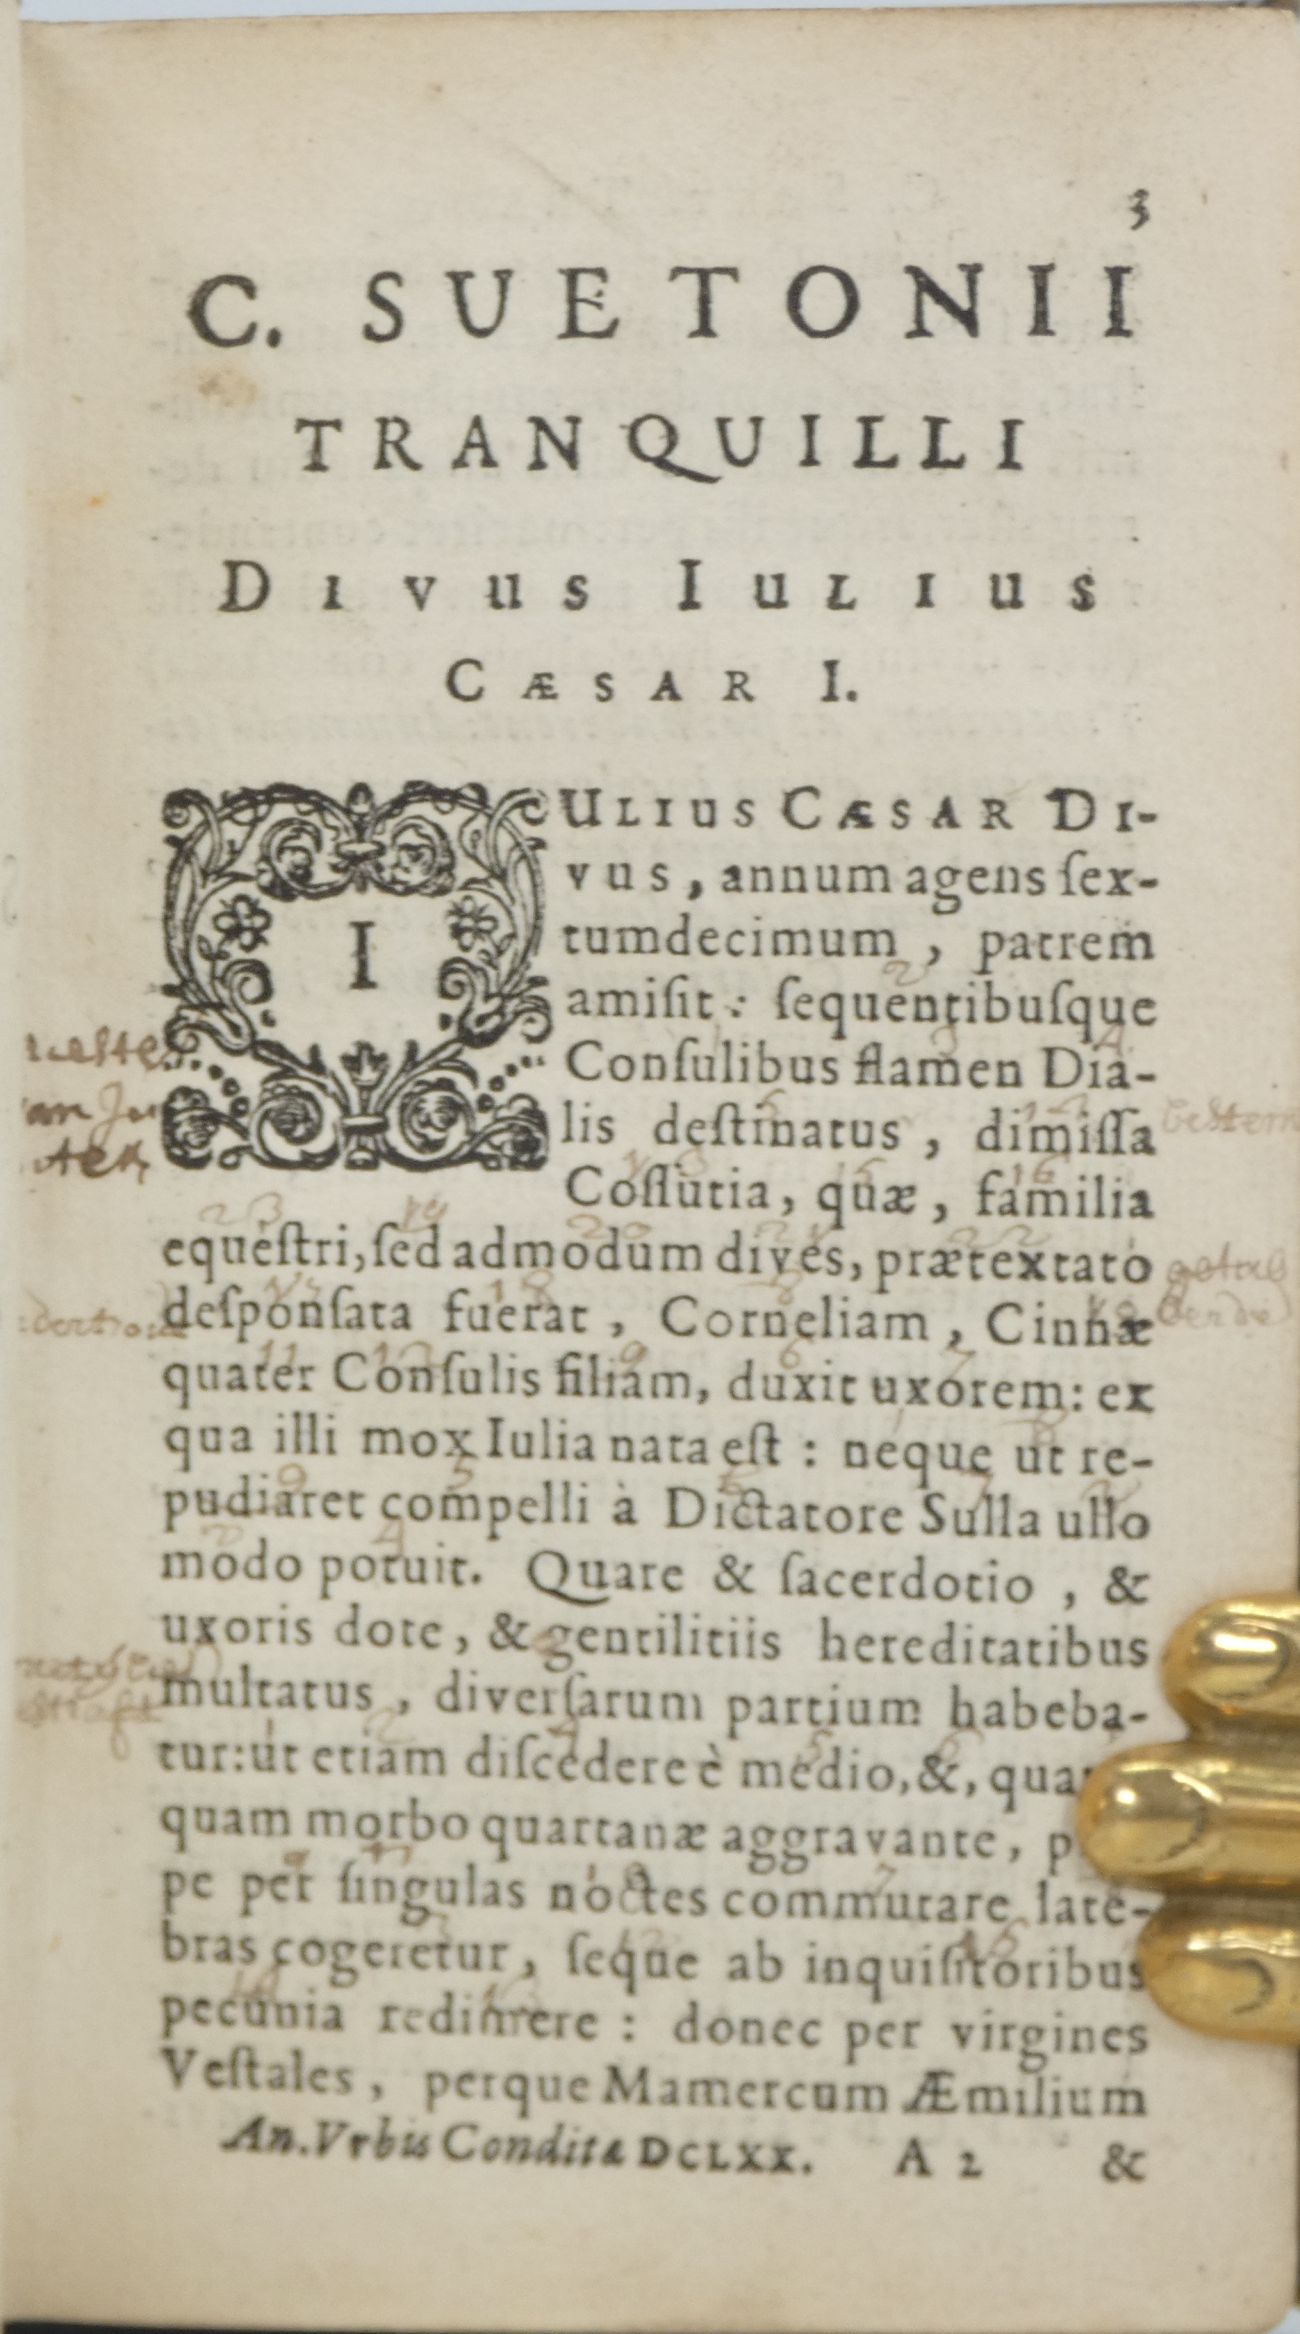 3
C. SUETONII
TRANQUILLI
DIVUS IULIUS
CÆSAR I.
IULIUS CÆSAR DI-
vus, annum agens ſex-
tumdecimum, patrem
amiſit: ſequentibuſque
Conſulibus flamen Dia-
lis deſtinatus, dimiſſa
Coſſutia, quæ, familia
equeſtri, ſed admodum dives, prætextato
deſponſata fuerat, Corneliam, Cinnæ
quater Conſulis filiam, duxit uxorem: ex
qua illi mox Iulia nata eſt: neque ut re-
pudiaret compelli à Dictatore Sulla ullo
modo potuit. Quare & ſacerdotio, &
uxoris dote, & gentilitiis hereditatibus
multatus, diverſarum partium habeba-
tur: ut etiam diſcedere è medio, &,
quam morbo quartanæ aggravante,
pe per ſingulas noctes commutare late-
bras cogeretur, ſeque ab inquiſitoribus
pecunia redimere: donec per virgines
Veſtales, perque Mamercum Æmilium
An. Vrbis Conditæ DCLXX. A 2 &